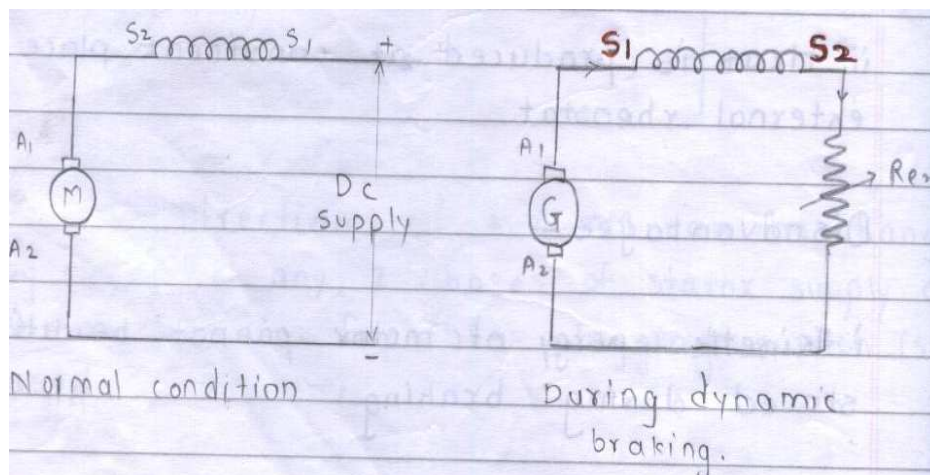 S2 S1 +
A1
M
A2
DC
Supply
-
Normal condition
S1 S2
A1
G
A2
During dynamic
braking.